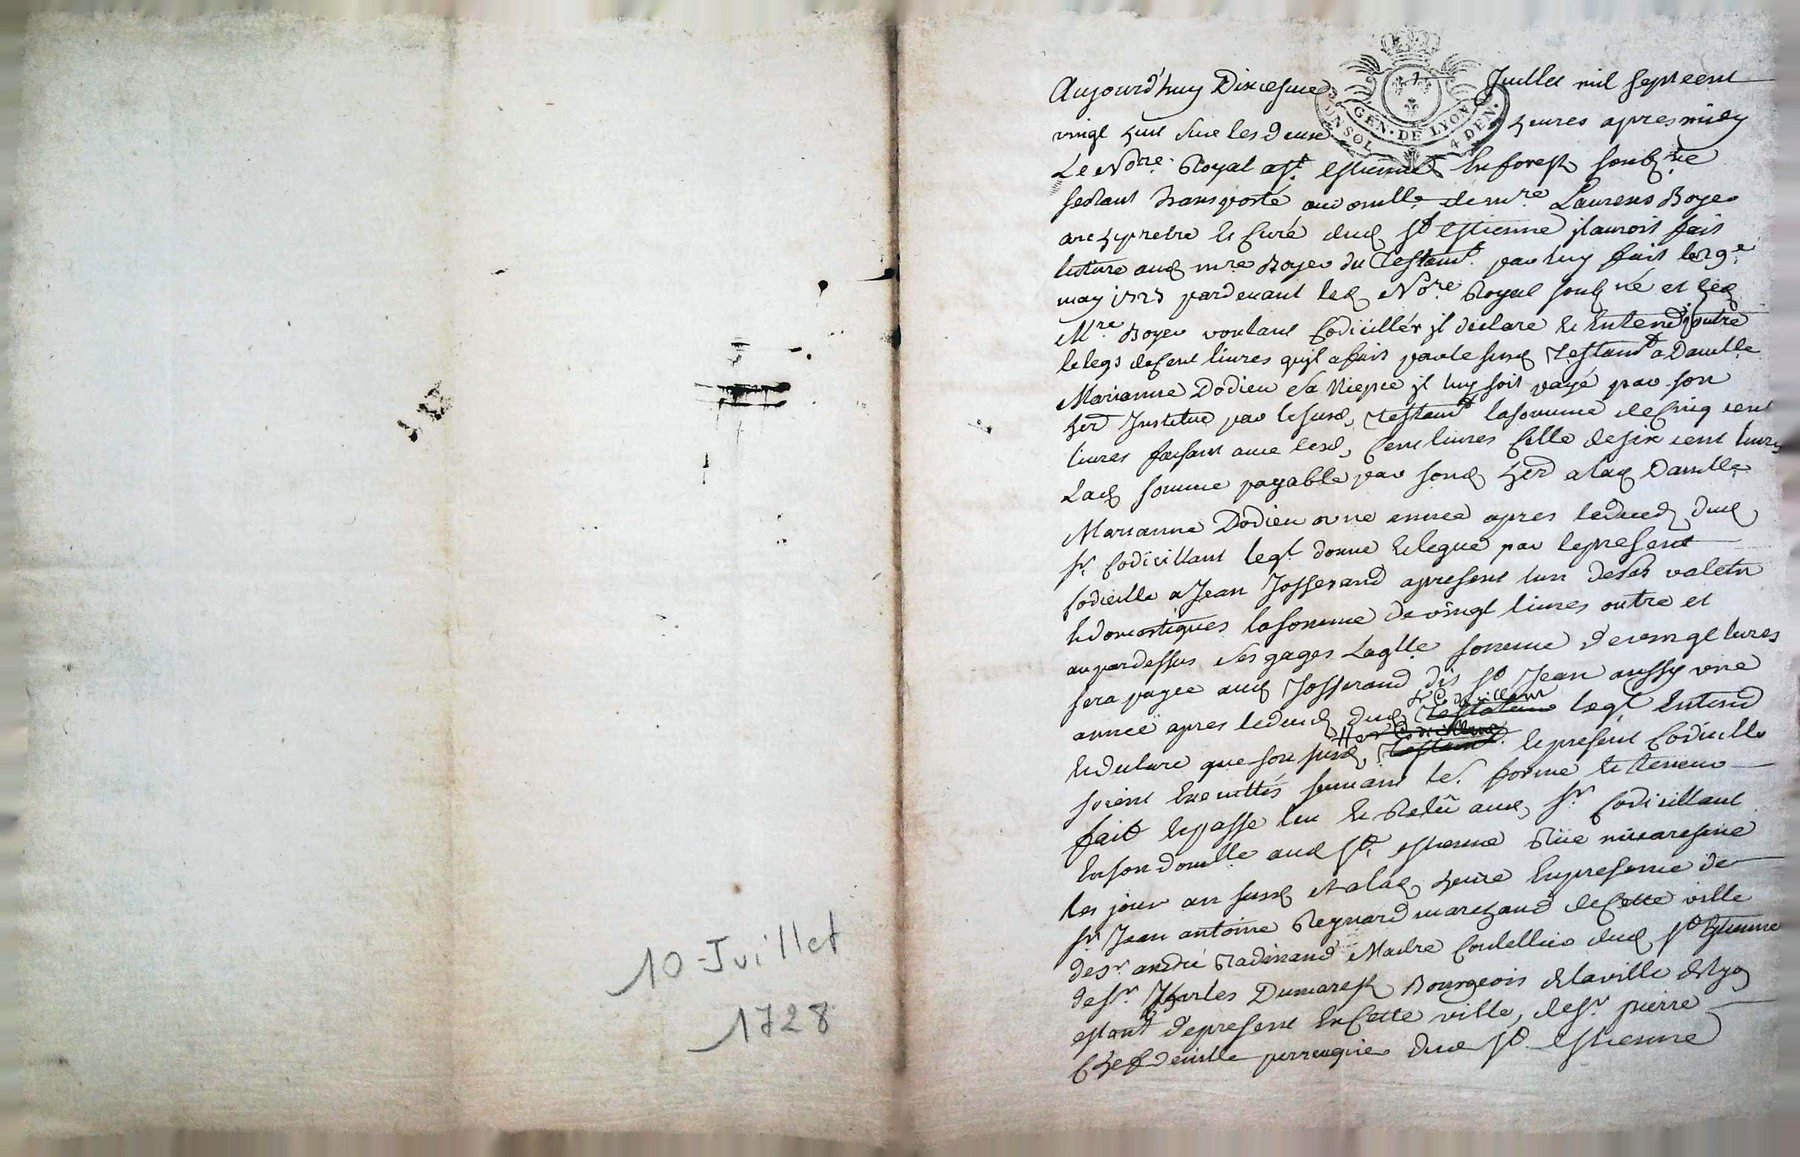 10 Juillet
1728
GEN · DE LYON
UN SOL 4 DEN.
Aujourd'huy Dixiesme Juillet mil sept cent
vingt huit sur les deux heures apres midy
Le No.re Royal a St. Estienne En forest soubs.né
sestant transporté au domille de m.re Laurens Boyer
archiprebtre et Curé dud St Estienne il auroit fait
lecture aud m.re Boyer du Testamt. par luy fait le 29.e
may 1727 pardevant led No.re Royal soubs.né et led
M.re Boyer voulant Codiciller il declare et Entend qu'outre
le legs de Cent livres qu'il a fait par le susd Testamt a Damlle
Marianne Dodieu sa Niepce il luy soit payé par son
her Institué par le susd. Testamt la somme de Cinq cent
livres faisant avec lesd. Cent livres Celle de six cent livres
Lad somme payable par sond her a lad Damlle
Marianne Dodieu une année apres le deced dud
sr. Codicillant legt donne et legue par le present
Codicille a Jean Josserand a present l'un de ses valets
et domestiques la somme de vingt livres outre et
au par dessus ses gages Laqlle somme de vingt livres
sera payée aud Josserand dit St Jean aussy une
année apres le deced dud Codicillant legl Entend
et declare que son susd. le present Codicille
soient Executtés suivant les forme et teneur
fait et passé leu et Relû aud. sr. Codicillant
En son domille aud St. estienne Rüe
les jour an susd et a lad. heure En presence de
sr Jean antoine Reynard marchand de Cette ville
de sr. andré Radinand Maitre Coutellier dud St Estienne
de sr. Charles Dumarest Bourgeois de la ville de Lyon
estant de present En Cette ville, de sr. pierre
Chefdeville perruquier dud St. Estienne